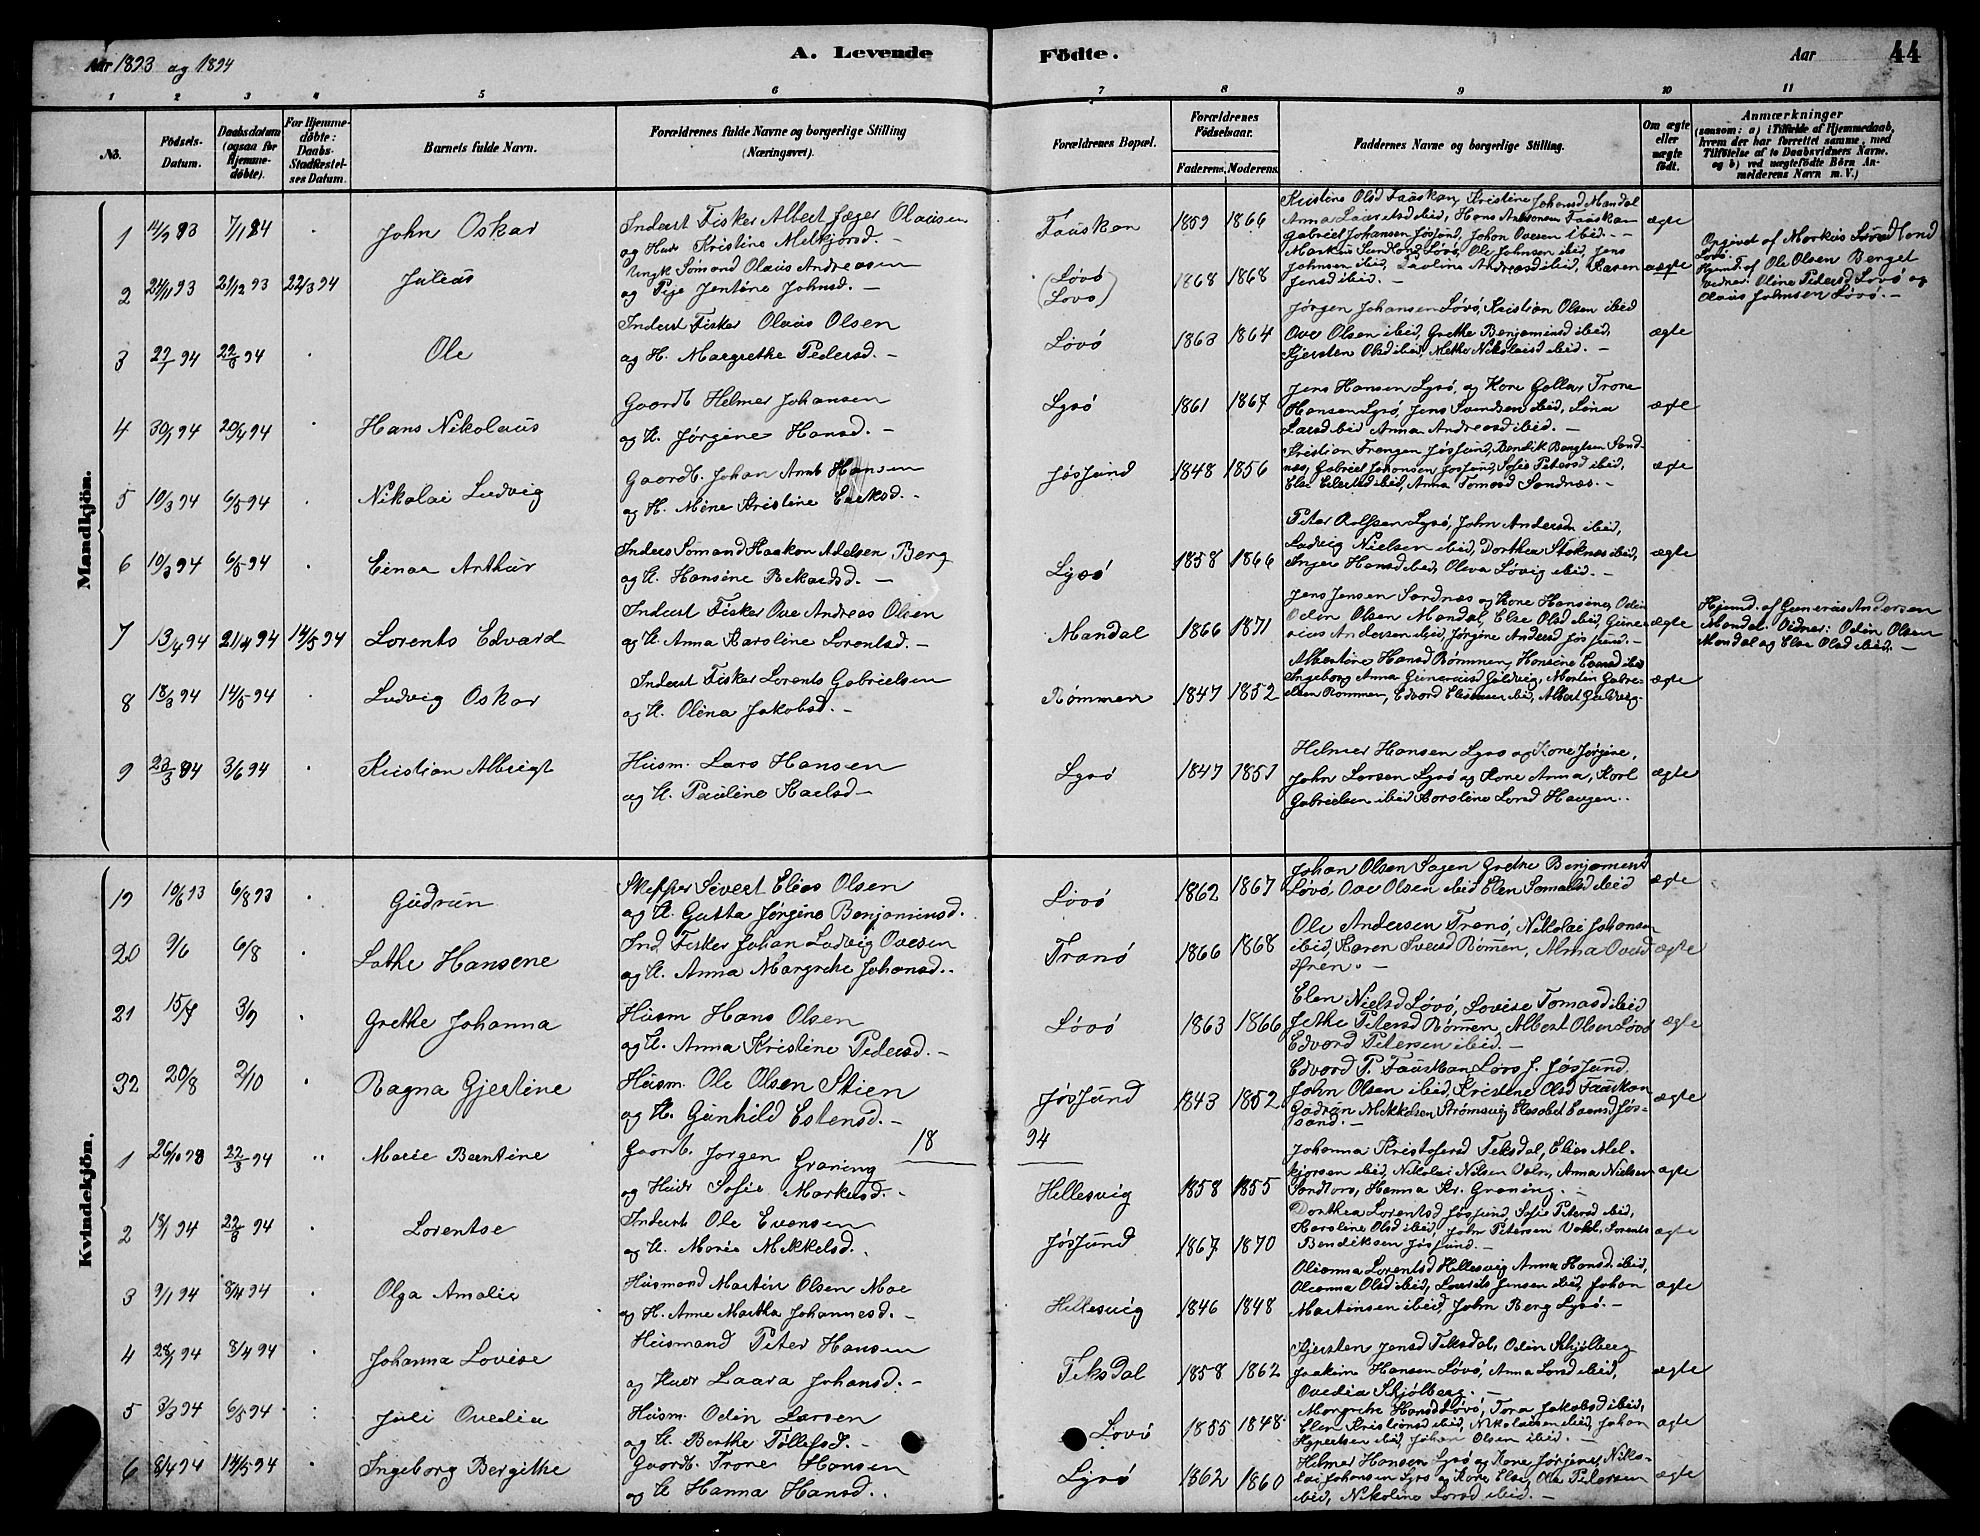 Aar 1893 og 1894
A. Levende Födte.
Aar 44
1 2 3 4 5 6 7 8 9 10 11
No. Födsels-Datum. Daabsdatum (ogsaa for Hjemme-döbte). For Hjemme-döbte: Daabs-Stadfæstel-ses Datum. Barnets fulde Navn. Forældrenes fulde Navne og borgerlige Stilling (Næringsvei). Forældrenes Bopæl. Forældrenes Födselsaar. Faderens. Moderens. Faddernes Navne og borgerlige Stilling. Om ægte eller uægte födt. Anmærkninger (saasom: a) i Tilfælde af Hjemmedaab, hvem der har forrettet samme, med Tilföielse af to Daabsvidners Navne. og b) ved uægtefödte Börn An-melderens Navn m. V.)
Mandkjön.
1 14/9 93 7/1 94 John Oskar
Inderst Fisker Albert Jæger Olaisen
og Hustr Kristine Melkjorsd. -
Fauskan 1859 1866
Kristine Olsd Fauskan, Kristine Johansd Mandal
Anna Lauritsd ibid, Hans Antonsen Fauskan
Gabriel Johansen Jøssund, Johan Ovesen ibid. -
ægte
2 24/11 93 21/12 93 22/3 94 Julius
Ungk Sömand Olaus Andreasen
og Pige Jentine Johnsd. -
(Løvö Lovo) 1868 1868
Markus Sandland Løvö, Ole Johnsen ibid, Jens
Johnsen ibid, Pauline Andreasd ibid, Karen
Jensd ibid. -
uægte
Opgivet af Markus Sandland
Løvö.
Hjemd. af Ole Olsen Berget
Vidner: Oline Petersd Løvö og
Olaus Johnsen Løvö. -
3 27/1 94 22/3 94 Ole
Inderst Fisker Olaus Olsen
og H. Margrethe Pedersd. -
Løvö 1863 1864
Jörgen Johansen Løvö, Kristian Olsen ibid
Ove Olsen ibid, Grethe Benjaminsd ibid,
Kjersten Olsd ibid, Methe Nikolaisd ibid. -
ægte
4 30/1 94 20/4 94 Hans Nikolaus
Gaardb. Helmer Johansen
og H. Jørgine Hansd. -
Lysö 1861 1867
Jens Hansen Lysö, og Kone Trone
Hansen Lysö, Jens ibid, Lina
Larsd ibid Anna Andreasd ibid. -
ægte
5 10/3 94 6/5 94 Nikolai Ludvig
Gaardb. Johan Arnt Hansen
og H. Mine Kristine -
Jøssund 1848 1856
Kristian Frengen Jøssund, Bendik Bengtsen Sand-
næs, Gabriel Johansen Jøssund, Sofie Petersd ibid,
Else Eilertsd ibid, Anna Tomasd Sandnæs. -
ægte
6 10/3 94 6/5 94 Einar Arthur
Inders Sömand Haakon Adelsen Berg
og H. Hansine Rikardsd. -
Lysö 1858 1866
Peter Rolfsen Lysö, John Andersen ibid,
Ludvig Nielsen ibid, Dorthea Stoknæs ibid,
Inger Hansd ibid, Oleva Løvig ibid. -
ægte
7 13/4 94 21/4 94 14/5 94 Lorents Edvard
Inderst Fisker Ove Andreas Olsen
og H. Anna Karoline Lorentsd. -
Mandal 1866 1871
Jens Jensen Sandnæs og Kone Hansine, Odin
Odin Olsen Mandal, Else Olsd ibid, Guner
ius Andersen ibid, Jørgine Andersd Jøssund. -
ægte
Hjemd. af Gunerius Andersen
Mandal. Vidner: Odin Olsen
Mandal og Else Olsd ibid. -
8 18/3 94 14/5 94 Ludvig Oskar
Inderst Fisker Lorents Gabrielsen
og H. Olina Jakobsd. -
Rømmen 1847 1852
Albertine Hansd Rømmen, Hansine ibid
Ingeborg Anna Gunariusd Guldvig, Martin Gabri-
elsen Rømmen, Edvard ibid, Albert Guldvig -
ægte
9 23/3 94 3/6 94 Kristian Albrigt
Husm. Lars Hansen
og H. Pauline Karlsd -
Lysö 1847 1851
Helmer Hansen Lysö og Kone Jørgine,
John Larsen Lysö og Kone Anna, Karl
Gabrielsen ibid Karoline Larsd Haugen.
ægte
Kvindekjön.
19 10/6 93 6/8 93 Gudrun
Skipper Sivert Elias Olsen
og H. Gutta Jørgine Benjaminsd.
Løvö 1862 1867
Johan Olsen Sagen Grethe Benjaminsd
Løvö, Ove Olsen ibid Elen ibid
ægte
20 9/6 6/8 Lathe Hansene
Ind Fisker Johan Ludvig Ovesen
og H. Anna Margrethe Johansd.
Tranö 1866 1868
Ole Andersen Tranö, Nikolai Johansen
ibid, Karen Rømen, Alma Ovesd
ægte
21 15/7 3/9 Grethe Johanna
Husm Hans Olsen
og H. Anna Kristine Pedersd. -
Løvö 1863 1866
Elen Nielsd Løvö, Lovise Tomasd ibid
Jethe Petersd Rømen, Albert Olsen Løvö
Edvard Petersen ibid. -
ægte
32 20/8 2/10 Ragna Gjertine
Husm. Ole Olsen Stien
og H. Gunhild Estensd. -
Jøssund 1843 1852
Edvard P. Fauskan Lars J. Jøssund,
John Olsen ibid, Kristine Olsd Fauskan
Gudrun Mikkelsen Strømsvig Elesabet Evensd Jøs-
sund. -
ægte
18 94
1 26/10 93 22/3 94 Marie Berntine
Gaardb. Jørgen Graning
og Hustr Sofie Markusd. -
Hellesvig 1858 1855
Johanna Kristofersd Teksdal, Elias Mel-
kjorsen ibid, Nikolai Nilsen, Anna Nielsen
Hanna Kr. Graning. -
ægte
2 18/1 94 22/3 94 Lorentse
Inderst Ole Evensen
og H. Marie Mikkelsd.
Jøssund 1867 1870
Dorthea Lorentsd Jøssund, Sofie Petersd ibid,
Karoline Olsd ibid, John Petersen, Lorents
Bendiksen Jøssund. -
ægte
3 9/1 94 8/4 94 Olga Amalie
Husmand Martin Olsen Moe
og H. Anne Martha Johannesd. -
Hellesvig 1846 1848
Olianna Lorentsd Hellesvig Anna Hansd ibid,
Olianna Olsd ibid, Laurits Jensen ibid, Johan
Martinsen ibid, John Berg Lysö. -
ægte
4 28/1 94 8/4 94 Johanna Lovise
Husmand Peter Hansen
og Hustr Laura Johansd. -
Teksdal 1858 1862
Kjersten Jensd Teksdal, Odin Skjölberg
Joakim Hansen Løvö, Anna Larsd ibid,
Ovedia Skjölberg. -
ægte
5 3/3 94 6/5 94 Juli Ovedia
Husm. Odin Larsen
og H. Berthe Tollefsd. -
Løvö 1855 1848
Margrethe Hansd Løvö, Tora Jakobsd ibid,
Elen Kristiansd ibid, ibid, Johan
ibid, Johan Olsen ibid. -
ægte
6 8/4 94 14/5 94 Ingeborg Bergithe
Gaardb. Trone Hansen
og H Hanna Hansd.
Lysö 1862 1860
Helmer Hansen Lysö og Kone Jørgine, Niko-
lai Johansen Lysö og Kone Else, Ole Petersen
ibid, Nikoline Larsd ibid. -
ægte